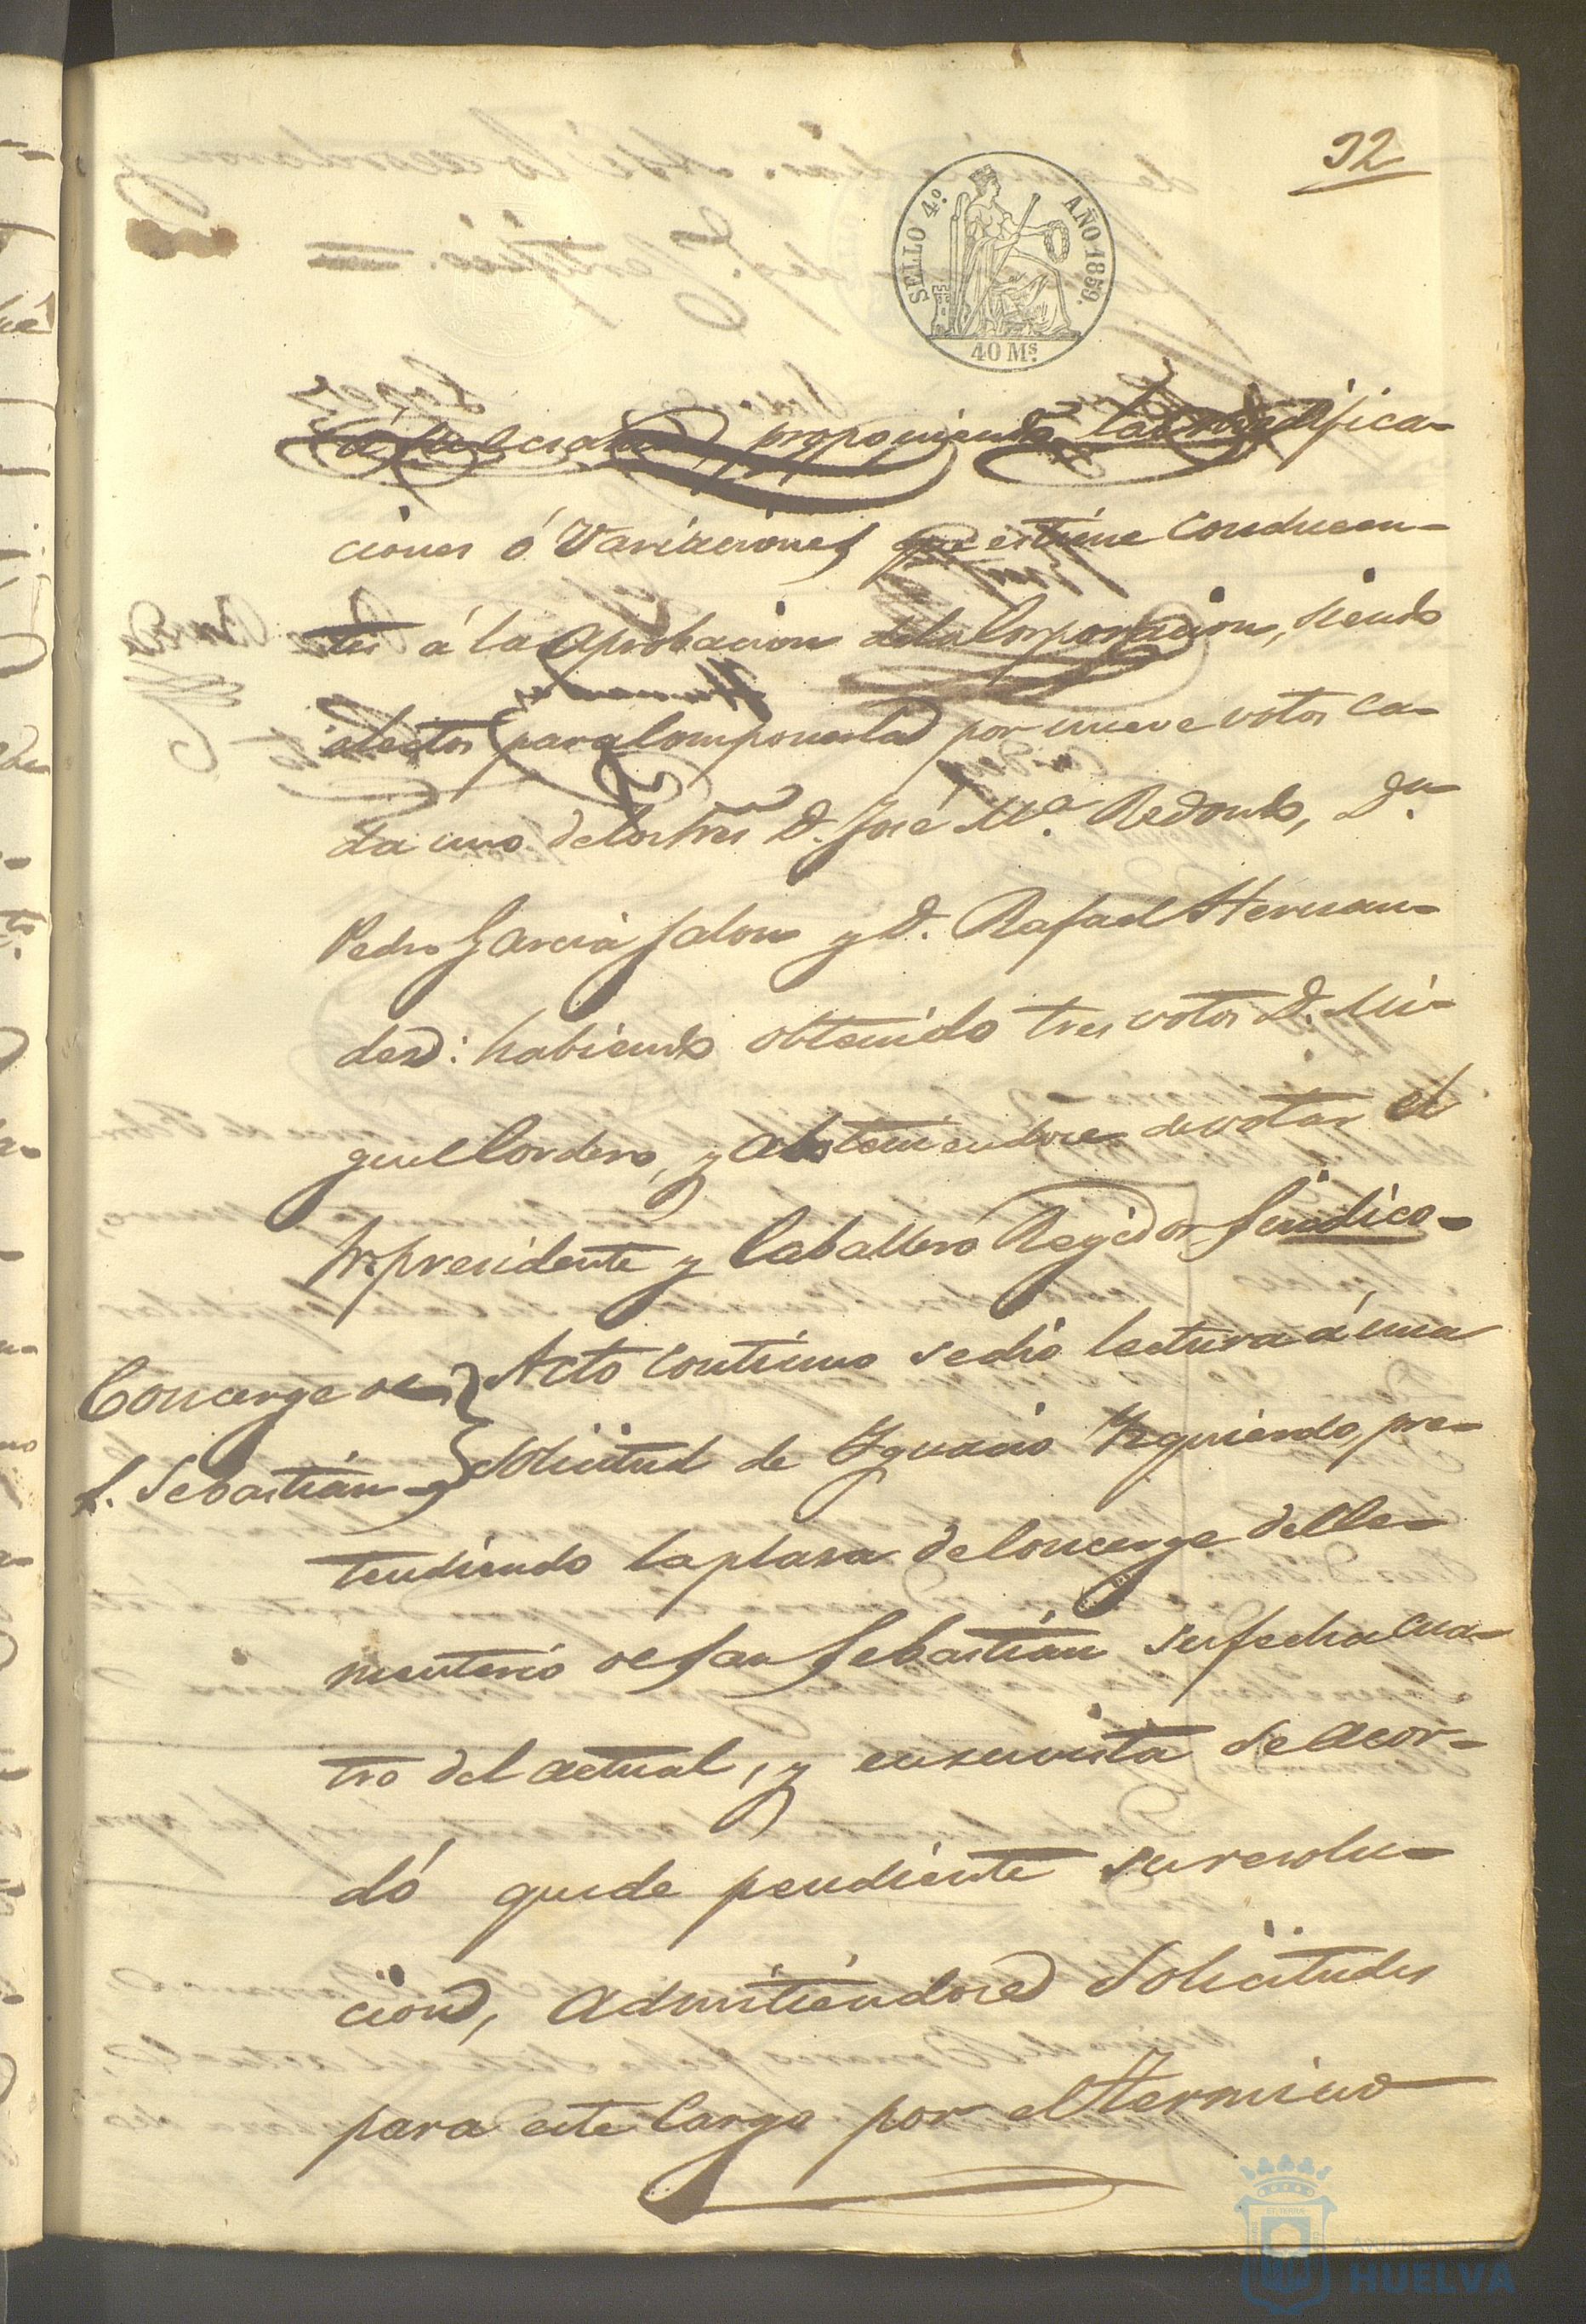 32
SELLO 4º AÑO 1859.
40 Ms.
proponiendo las modifica-
ciones ó Variaciones que estime conducen-
tes á la aprobacion de la Corporacion, siendo
electos para Componerla por nueve votos ca-
da uno de los tres D. José Mª. Redondo, Dn.
Pedro Garcia Jalon y D. Rafael Hernan-
dez: habiendo obtenido tres votos D. Mi-
guel Cordero, y absteniendose de votar el
Sr. presidente y Caballero Regidor Sindico-
Concerge de Acto contínuo se dió lectura á una
S. Sebastián solicitud de Ygnacio Yzquierdo, pre-
tendiendo la plaza de Concerge del Ce-
menterio de San Sebastián su fecha cua-
tro del actual, y en su vista se acor-
dó quede pendiente su resolu-
cion, admitiéndose Solicitudes
para este Cargo por el termino
HUELVA